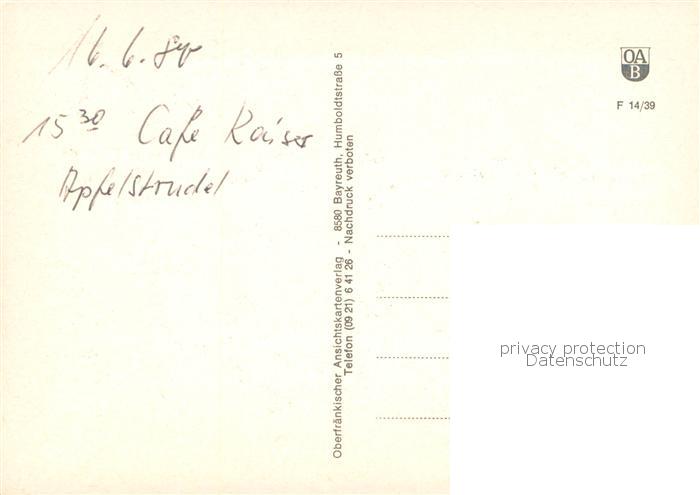 16.6.80
15 30 Cafe Kaiser
Apfelstrudel
Oberfränkischer Ansichtskartenverlag - 8580 Bayreuth, Humboldtstraße 5
Telefon (09 21) 6 41 26 - Nachdruck verboten
OA
B
F 14/39
privacy protection
Datenschutz